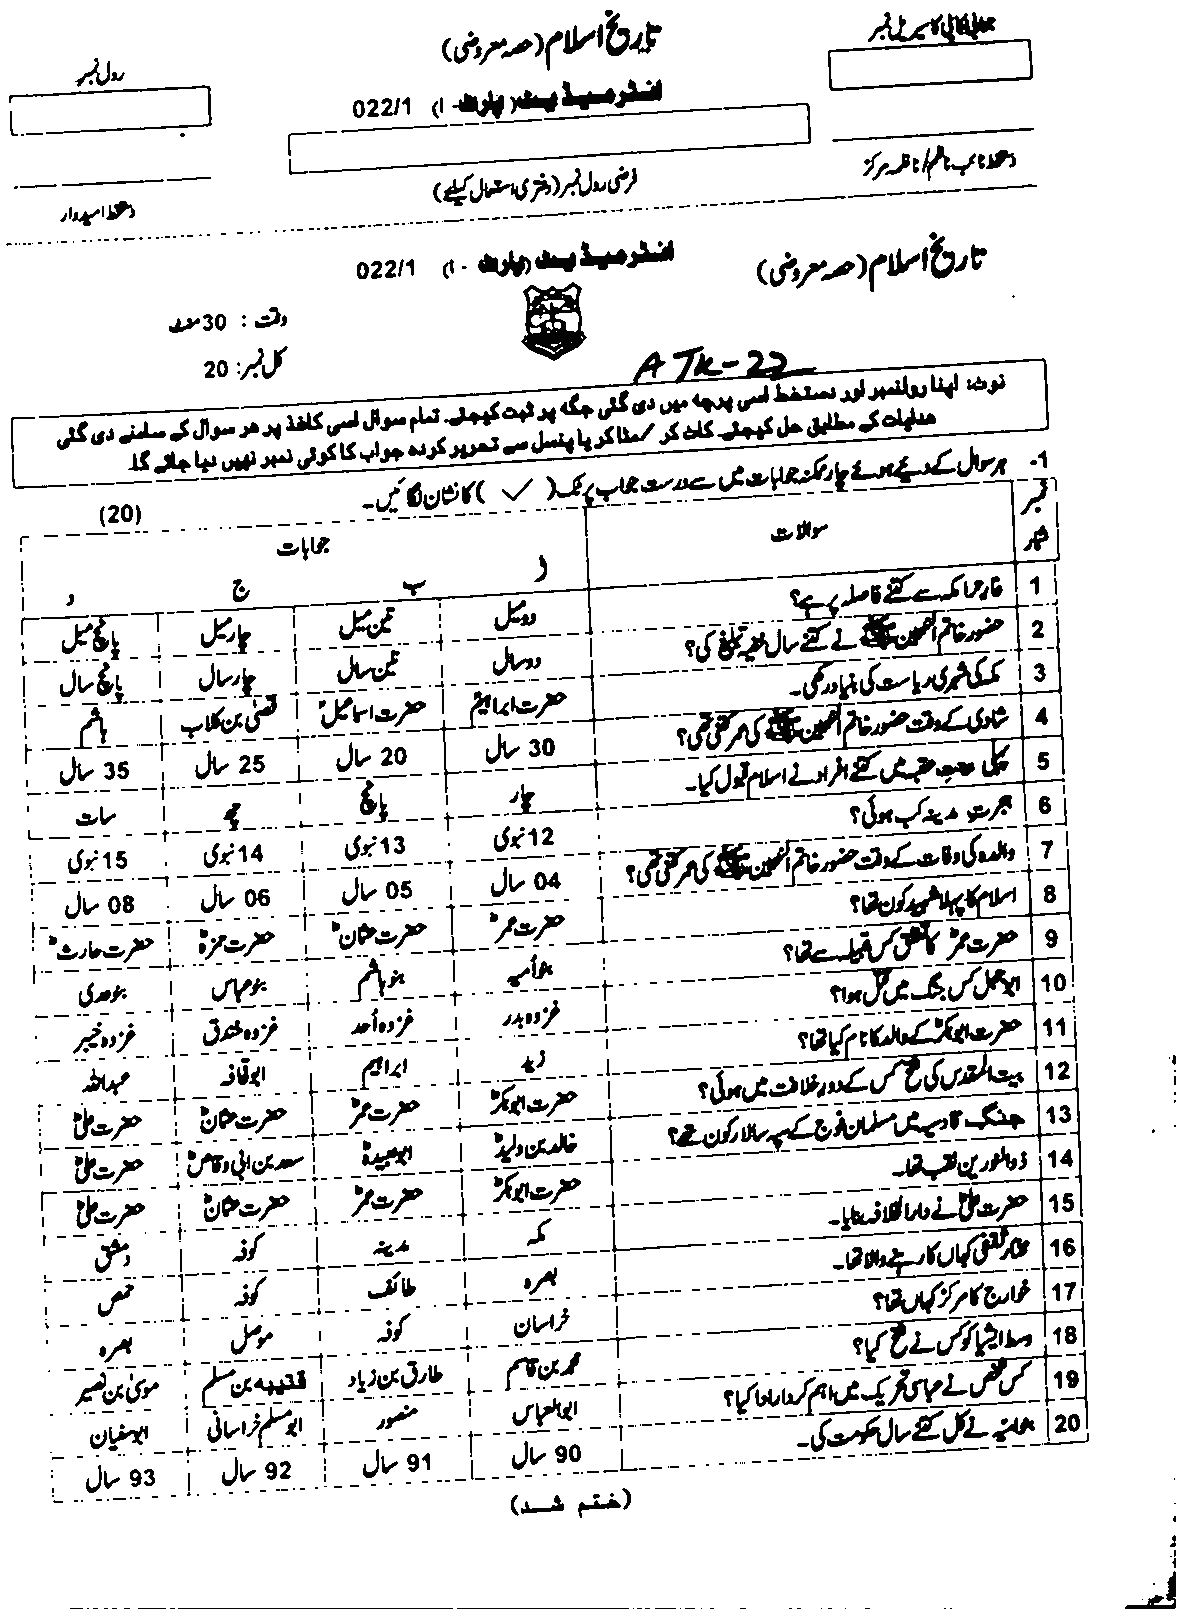 تاریخ اسلام (حصہ معروضی)
جوابی کاپی کا سیریل نمبر
رول نمبر
انٹرمیڈیٹ (پارٹ - I) 022/1
دستخط نائب ناظم/ناظمہ مرکز
فرضی رول نمبر (دفتری استعمال کیلئے)
دستخط امیدوار
تاریخ اسلام (حصہ معروضی)
انٹرمیڈیٹ (پارٹ - I) 022/1
وقت : 30 منٹ
کل نمبر: 20
ATK-22
نوٹ: اپنا رولنمبر اور دستخط اسی پرچہ میں دی گئی جگہ پر ثبت کیجئے۔ تمام سوال اسی کاغذ پر ہر سوال کے سامنے دی گئی
ہدایات کے مطابق حل کیجئے۔ کاٹ کر /مٹا کر یا پنسل سے تحریر کردہ جواب کا کوئی نمبر نہیں دیا جائے گا۔
1- ہر سوال کے دیئے ہوئے چار ممکنہ جوابات میں سے درست جواب پر ٹِک ( ✓ ) کا نشان لگائیں۔ (20)
نمبر شمار سوالات جوابات
ا ب ج د
1 غار حرا مکہ سے کتنے فاصلہ پر ہے؟ دو میل تین میل چار میل پانچ میل
2 حضور خاتم النبیین ﷺ نے کتنے سال خفیہ تبلیغ کی؟ دو سال تین سال چار سال پانچ سال
3 مکہ کی شہری ریاست کی بنیاد رکھی۔ حضرت ابراہیمؑ حضرت اسماعیلؑ قصیٰ بن کلاب ہاشم
4 شادی کے وقت حضور خاتم النبیین ﷺ کی عمر کتنی تھی؟ 30 سال 20 سال 25 سال 35 سال
5 پہلی بیعتِ عقبہ میں کتنے افراد نے اسلام قبول کیا۔ چار پانچ چھ سات
6 ہجرتِ مدینہ کب ہوئی؟ 12 نبوی 13 نبوی 14 نبوی 15 نبوی
7 والدہ کی وفات کے وقت حضور خاتم النبیین ﷺ کی عمر کتنی تھی؟ 04 سال 05 سال 06 سال 08 سال
8 اسلام کا پہلا شہید کون تھا؟ حضرت عمرؓ حضرت عثمانؓ حضرت حمزہؓ حضرت حارثؓ
9 حضرت عمرؓ کا تعلق کس قبیلہ سے تھا؟ بنو اُمیہ بنو ہاشم بنو عباس بنو عدی
10 ابوجہل کس جنگ میں قتل ہوا؟ غزوہ بدر غزوہ اُحد غزوہ خندق غزوہ خیبر
11 حضرت ابوبکرؓ کے والد کا نام کیا تھا؟ زید ابراہیم ابو قحافہ عبداللہ
12 بیت المقدس کی فتح کس کے دور خلافت میں ہوئی؟ حضرت ابوبکرؓ حضرت عمرؓ حضرت عثمانؓ حضرت علیؓ
13 جنگ قادسیہ میں مسلمان فوج کے سپہ سالار کون تھے؟ خالد بن ولیدؓ ابوعبیدہؓ سعد بن ابی وقاصؓ حضرت علیؓ
14 ذوالنورین لقب تھا۔ حضرت ابوبکرؓ حضرت عمرؓ حضرت عثمانؓ حضرت علیؓ
15 حضرت علیؓ نے دارالخلافہ بنایا۔ مکہ مدینہ کوفہ دمشق
16 مختار ثقفی کہاں کا رہنے والا تھا۔ بصرہ طائف کوفہ حمص
17 خوارج کا مرکز کہاں تھا؟ خراسان کوفہ موصل بصرہ
18 وسط ایشیا کو کس نے فتح کیا؟ محمد بن قاسم طارق بن زیاد قتیبہ بن مسلم موسیٰ بن نصیر
19 کس شخص نے عباسی تحریک میں اہم کردار ادا کیا؟ ابوالعباس منصور ابو مسلم خراسانی ابو سفیان
20 بنو اُمیہ نے کل کتنے سال حکومت کی۔ 90 سال 91 سال 92 سال 93 سال
(ختم شد)